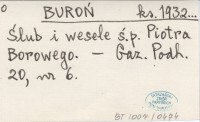 O BUROŃ ks. 1932...
Ślub i wesele ś.p. Piotra
Borowego. — Gaz. Podh.
20, nr 6.
BT 1007/0474